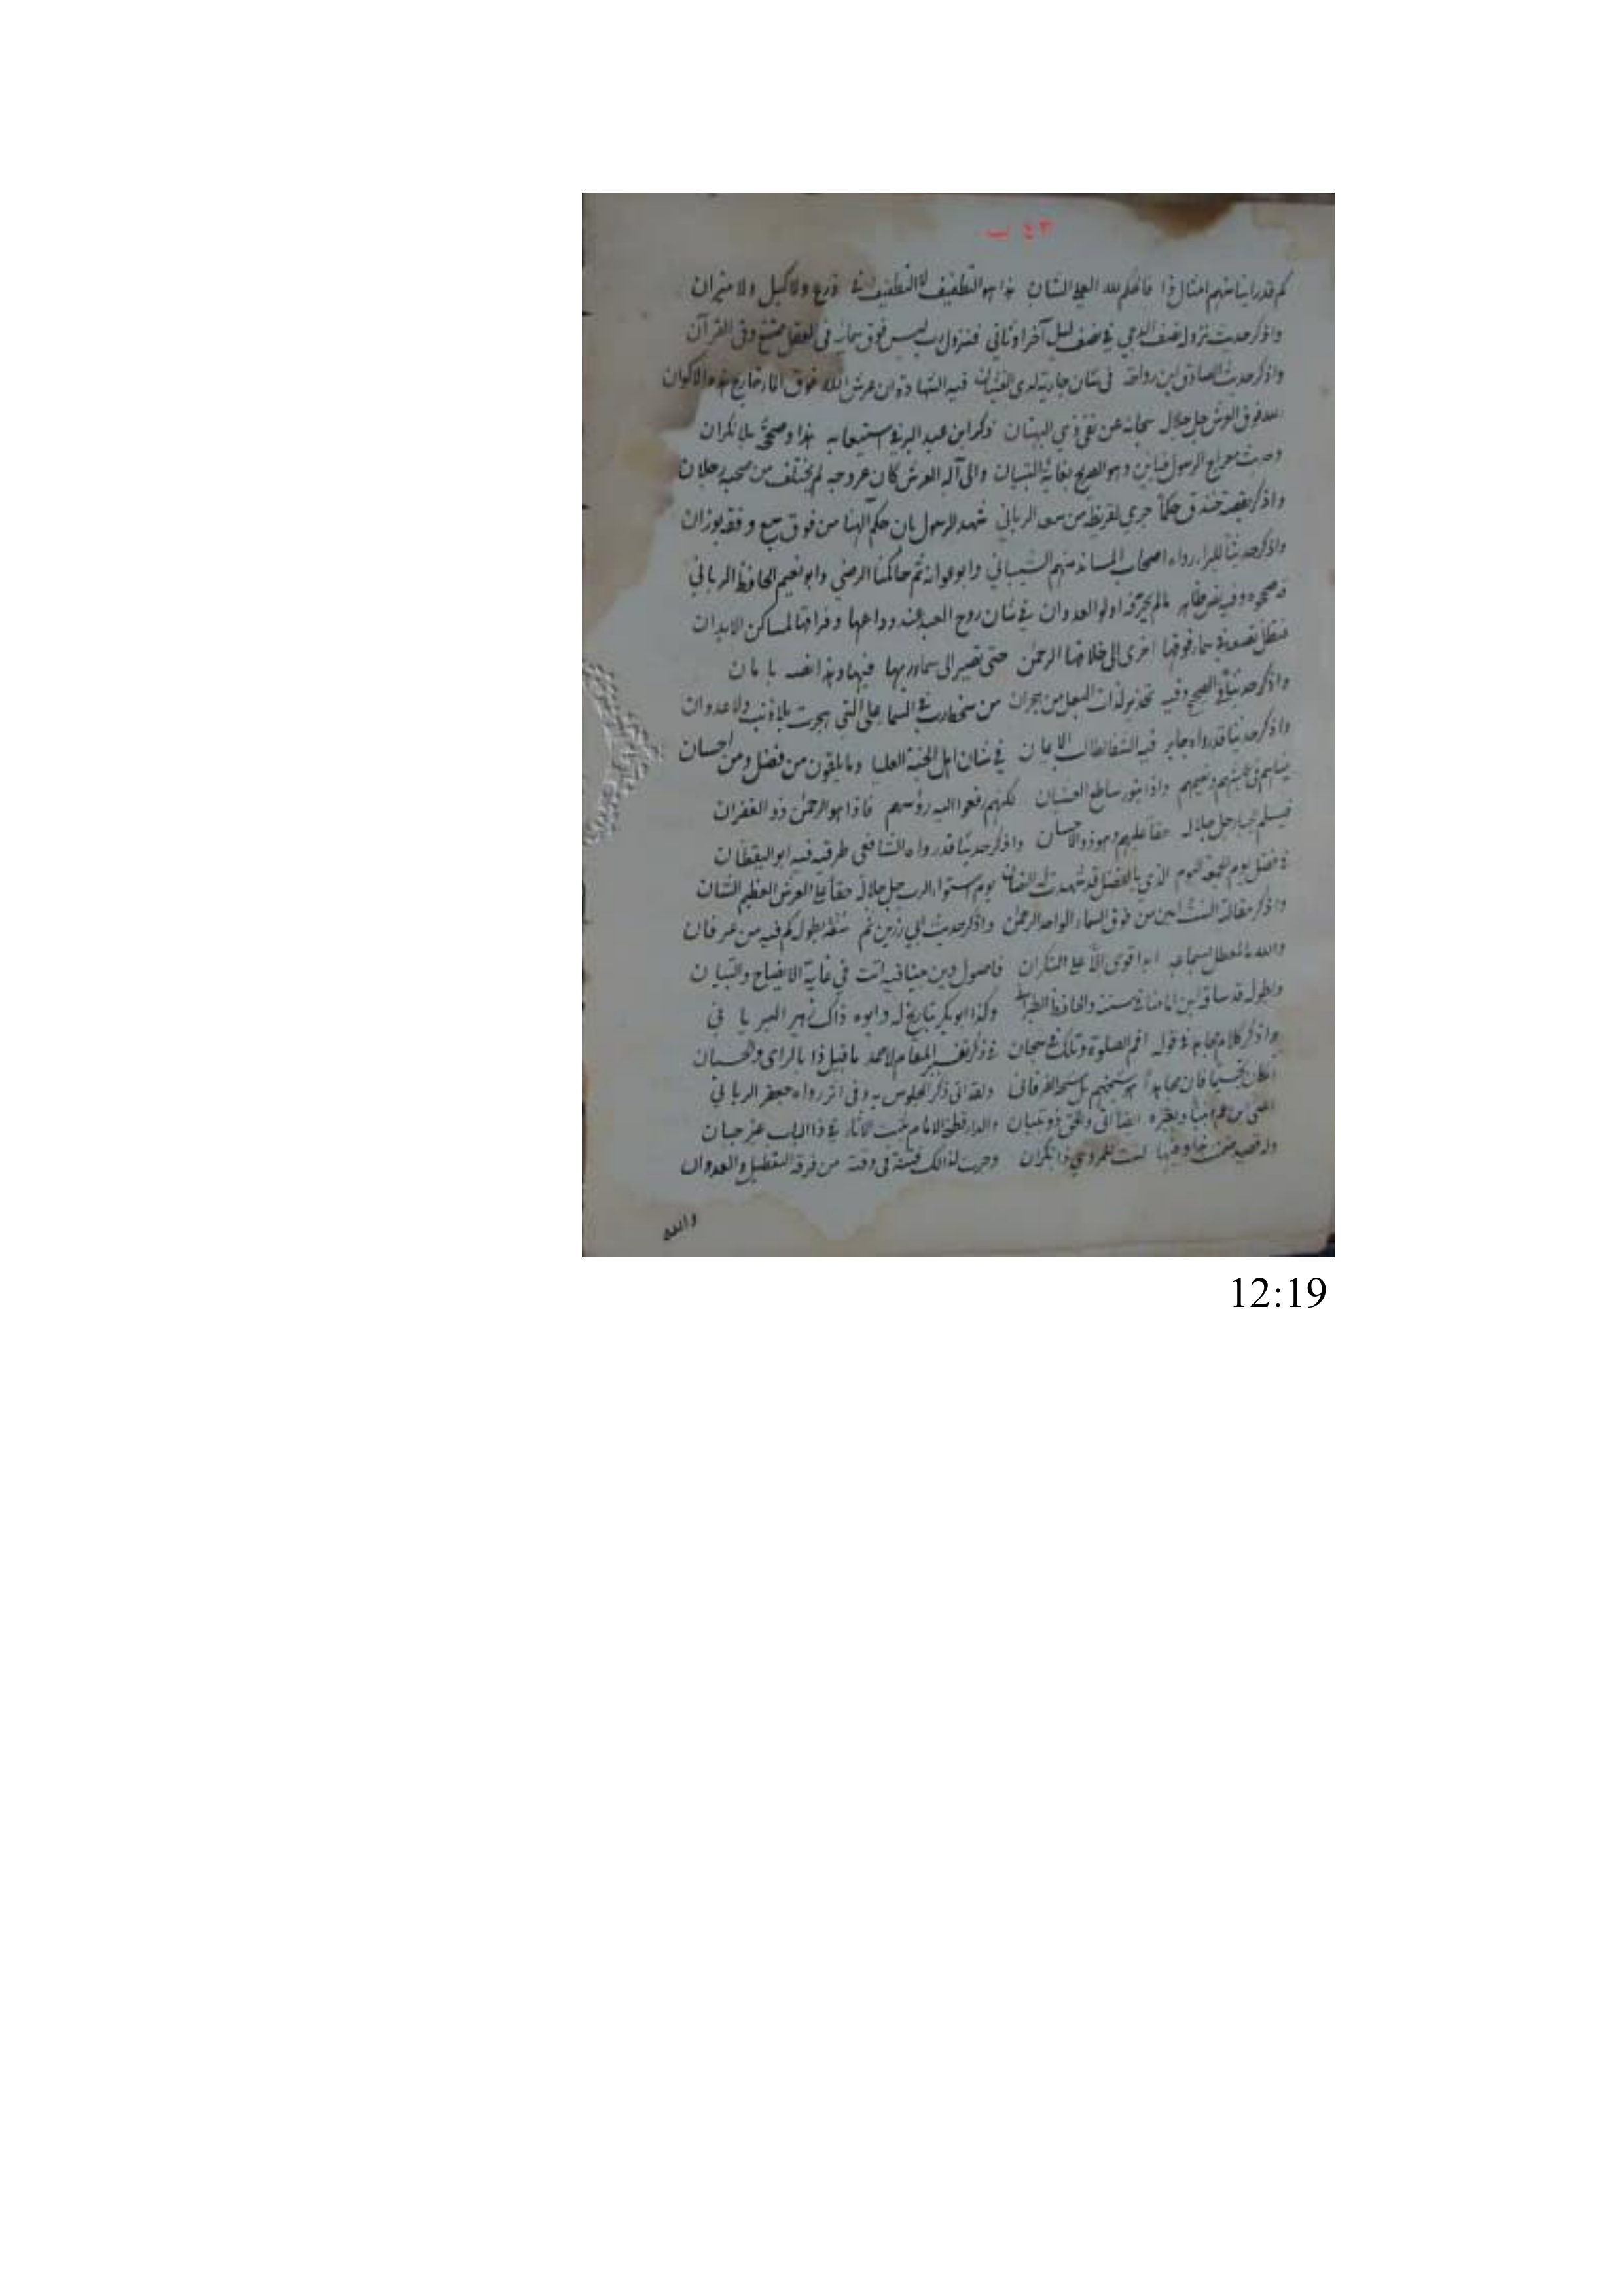 ٤٣ ب
كم قد راينا منهم امثال ذا فالحكم لله العلي الشان هذا هو التطفيف لا التطفيف في ذرع ولا كيل ولا ميزان
واذكر حديث نزوله نصف الدجى في نصف ليل آخر او ثاني فنزول رب ليس فوق سمائه في العقل ممتنع وفي القرآن
واذكر حديث الصادق ابن رواحة في شان جارية لدى الغشيان فيه الشهادة ان عرش الله فوق الماء خارج هذه الاكوان
والله فوق العرش جل جلاله سبحانه عن نفي ذي البهتان ذكر ابن عبد البر في استيعابه هذا وصححه بلا نكران
وحديث معراج الرسول فثابت وهو الصريح بغاية التبيان والى اله العرش كان عروجه لم يختلف من صحبه رجلان
واذكر بقصة خندق حكما جرى لقريظة من سعد الرباني شهد الرسول بان حكم الهنا من فوق سبع وفقه بوزان
واذكر حديثا للبراء رواه اصحاب المساند منهم الشيباني وابو عوانة ثم حاكمنا الرضي وابو نعيم الحافظ الرباني
قد صححوه وفيه نص ظاهر ما لم يحرفه اولو العدوان في شان روح العبد عند وداعها وفراقها لمساكن الابدان
فتظل تصعد في سماء فوقها اخرى الى خلاقها الرحمن حتى تصير الى سماء ربها فيها وهذا نصه بامان
واذكر حديثا في الصحيح وفيه تحذير لذات البعل من هجران من سخط رب في السماء على التي هجرت بلا ذنب ولا عدوان
واذكر حديثا قد رواه جابر فيه الشفاء لطالب الايمان في شان اهل الجنة العليا وما يلقون من فضل ومن احسان
بيناهم في عيشهم ونعيمهم واذا بنور ساطع الغشيان لكنهم رفعوا اليه رؤسهم فاذا هو الرحمن ذو الغفران
فيسلم الجبار جل جلاله حقا عليهم وهو ذو الاحسان واذكر حديثا قد رواه الشافعي طريقه فيه ابو اليقظان
في فضل يوم الجمعة اليوم الذي بالفضل قد شهدت له النصان يوم استواء الرب جل جلاله حقا على العرش العظيم الشان
واذكر مقالته الست امين من فوق السماء الواحد الرحمن واذكر حديث ابي رزين ثم سقه بطوله كم فيه من عرفان
والله ما لمعطل بسماعه ابدا قوى الا على النكران فاصول دين نبينا فيه اتت في غاية الايضاح والتبيان
وبطوله قد ساقه ابن امامنا في مسنده والحافظ الطبراني وكذا ابو بكر بتاريخ له وابوه ذاك زهير الرباني
واذكر كلام مجاهد في قوله اقم الصلوة وتلك في سبحان في ذكر تفسير المقام لاحمد ما قيل ذا بالراي والحسبان
ان كان تجسيما فان مجاهدا هو شيخهم بل شيخه الفوقاني ولقد اتى ذكر الجلوس به وفي اثر رواه جعفر الرباني
اعني ابن عم نبينا وبغيره ايضا اتى والحق ذو تبيان والدارقطني الامام يثبت الآثار في ذا الباب غير جبان
وله قصيد ضمنت هذا وفيها لست للمروي ذا نكران وجرت لذلك فتنة في وقته من فرقة التعطيل والعدوان
والله
12:19